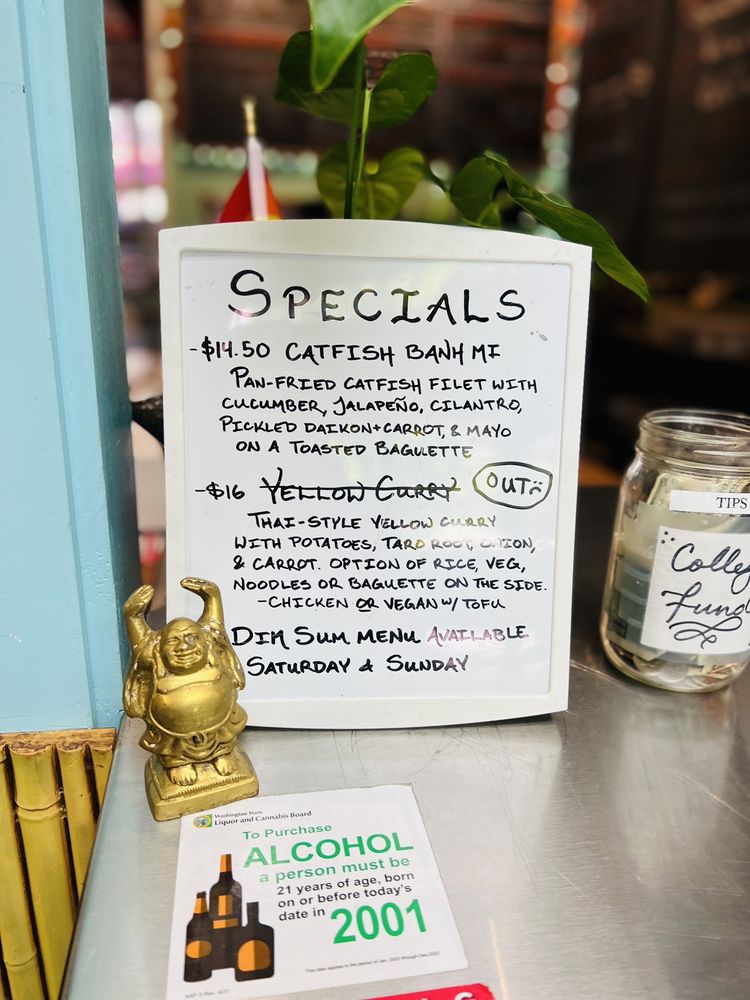 SPECIALS
-$14.50 CATFISH BANH MI
PAN-FRIED CATFISH FILET WITH
CUCUMBER, JALAPEÑO, CILANTRO,
PICKLED DAIKON+CARROT, & MAYO
ON A TOASTED BAGUETTE
-$16 YELLOW CURRY OUT
THAI-STYLE YELLOW CURRY
WITH POTATOES, TARO ROOT, ONION,
& CARROT. OPTION OF RICE, VEG,
NOODLES OR BAGUETTE ON THE SIDE.
-CHICKEN OR VEGAN W/ TOFU
DIM SUM MENU AVAILABLE
SATURDAY & SUNDAY
TIPS
Colle
Fund
Washington State
Liquor and Cannabis Board
To Purchase
ALCOHOL
a person must be
21 years of age, born
on or before today's
date in 2001